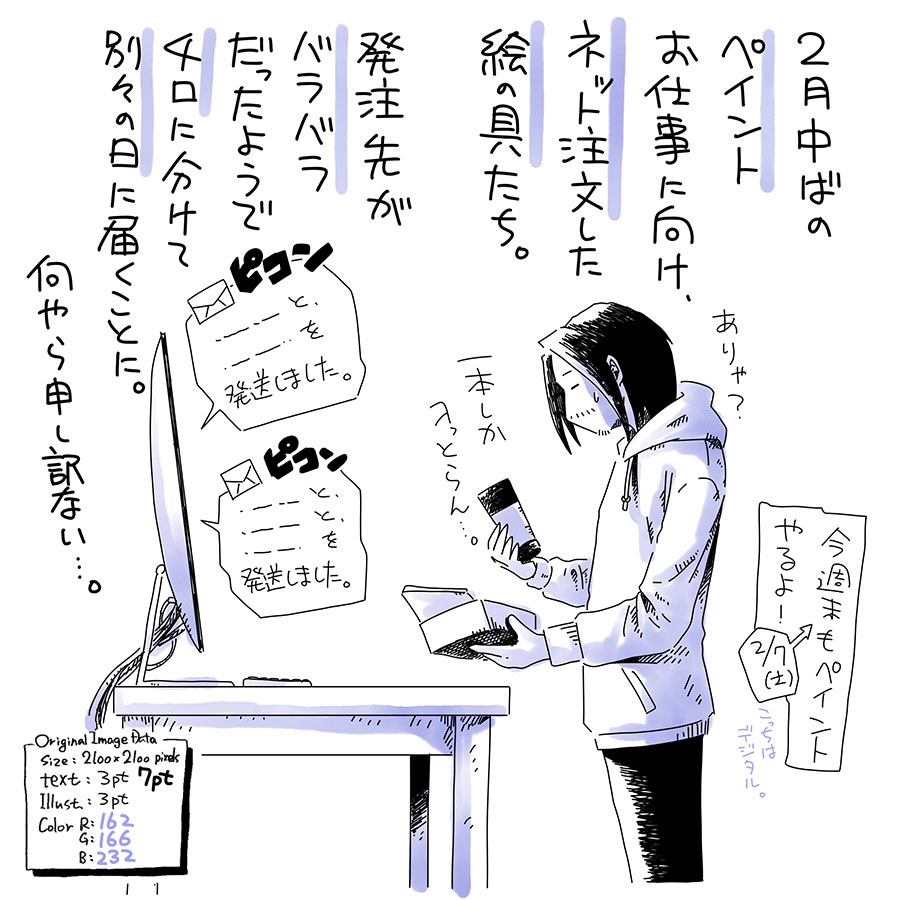 2月中ばの
ペイント
お仕事に向け、
ネット注文した
絵の具たち。
発注先が
バラバラ
だったようで
4口に分けて
別々の日に届くことに。
何やら申し訳ない…。
ピコン
と、
を
発送しました。
ピコン
と、
と、
を
発送しました。
ありゃ?
一本しか
入っとらん…。
今週末もペイント
やるよー!
2/7
(土)
こっちは
デジタル。
Original Image Data
Size : 2100×2100 pixels
text : 3pt 7pt
Illust. : 3pt
Color R: 162
G: 166
B: 232